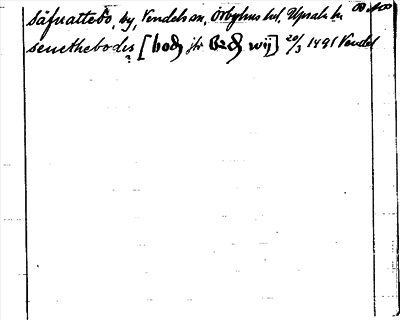 Säfvattebo, by, Vendels sn, Örbyhus hd, Upsala l.
senetthebodis [bodz jfr Bodz wij] 20/3 1491 Vendel